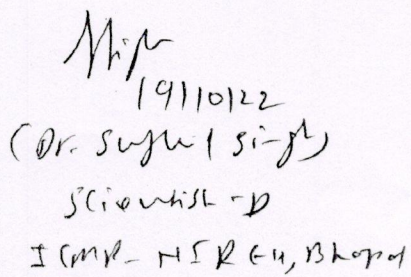 19/10/22
(Dr. Sushil Singh)
Scientist-D
ICMR-NIREH, Bhopal